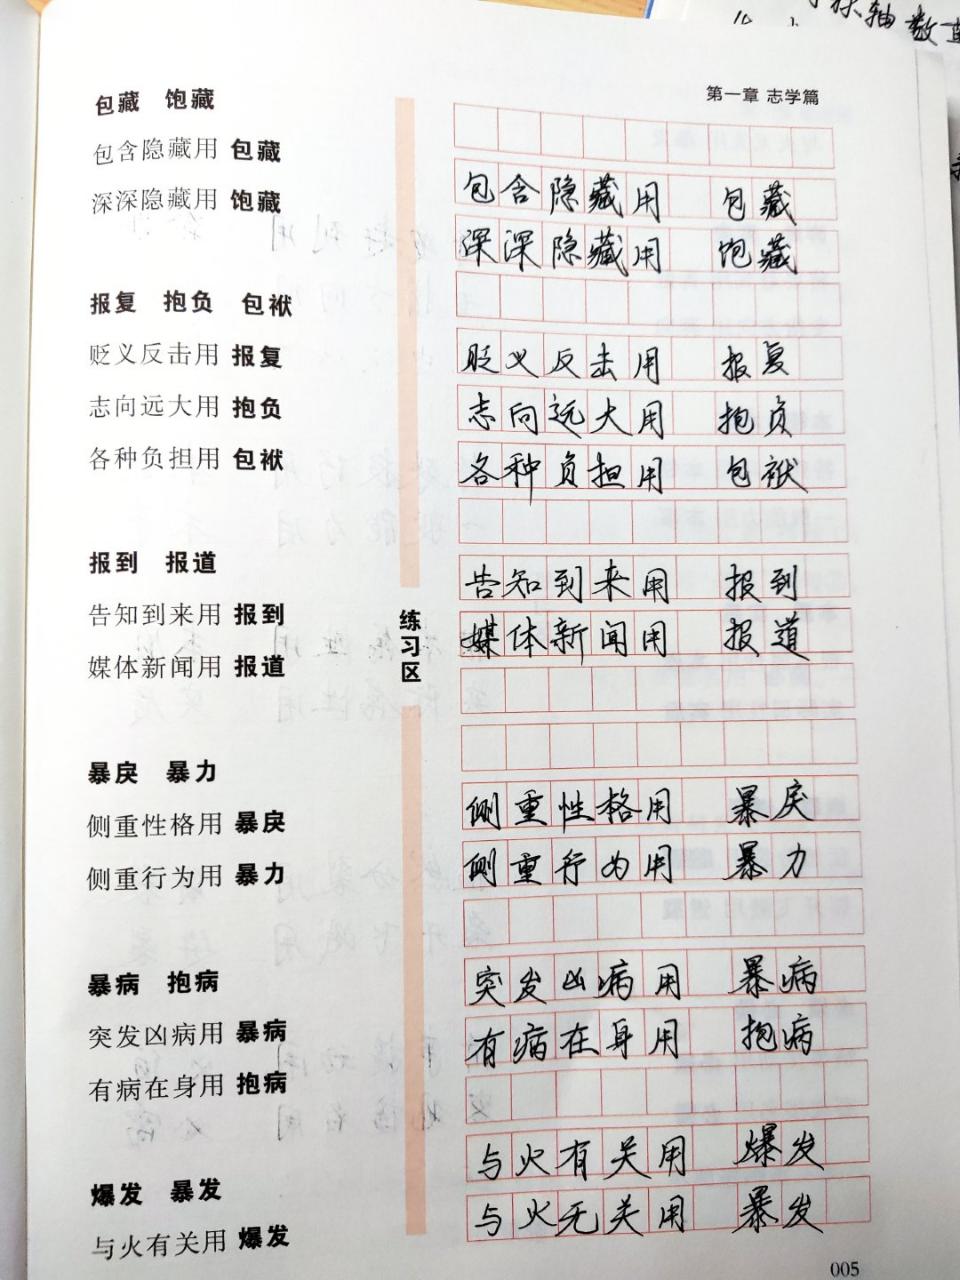 第一章 志学篇
包藏 饱藏
包含隐藏用 包藏
深深隐藏用 饱藏
报复 抱负 包袱
贬义反击用 报复
志向远大用 抱负
各种负担用 包袱
报到 报道
告知到来用 报到
媒体新闻用 报道
暴戾 暴力
侧重性格用 暴戾
侧重行为用 暴力
暴病 抱病
突发凶病用 暴病
有病在身用 抱病
爆发 暴发
与火有关用 爆发
练习区
包含隐藏用 包藏
深深隐藏用 饱藏
贬义反击用 报复
志向远大用 抱负
各种负担用 包袱
告知到来用 报到
媒体新闻用 报道
侧重性格用 暴戾
侧重行为用 暴力
突发凶病用 暴病
有病在身用 抱病
与火有关用 爆发
与火无关用 暴发
005